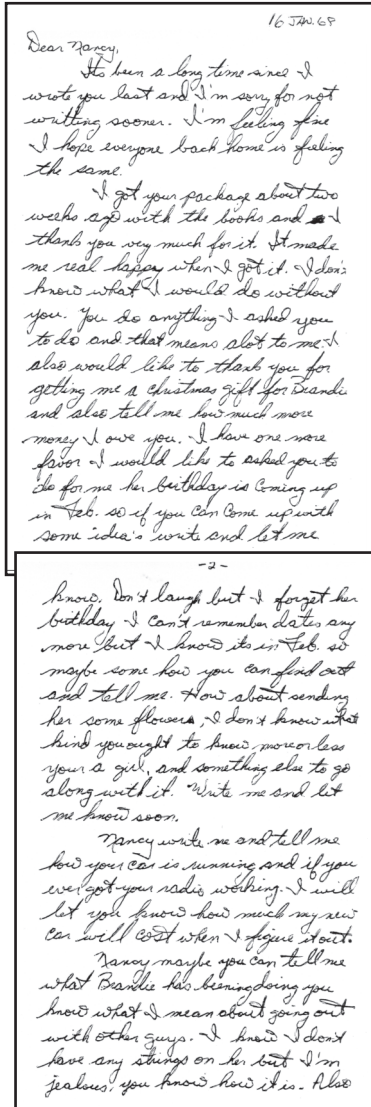 16 JAN. 68
Dear Nancy,
Its been a long time since I
wrote you last and I'm sorry for not
writting sooner. I'm feeling fine
I hope everyone back home is feeling
the same.
I got your package about two
weeks ago with the books and I
thank you very much for it. It made
me real happy when I got it. I don't
know what I would do without
you. You do anything I asked you
to do and that means alot to me. I
also would like to thank you for
getting me a christmas gift for Brandie
and also tell me how much more
money I owe you. I have one more
favor I would like to asked you to
do for me her birthday is coming up
in Feb. so if you can come up with
some idea's write and let me
-2-
know. Don't laugh but I forget her
birthday I can't remember dates any
more but I know its in Feb. so
maybe some how you can find out
and tell me. How about sending
her some flowers, I don't know what
kind you ought to know, more or less
your a girl, and something else to go
along with it. Write me and let
me know soon.
Nancy write me and tell me
how your car is running and if you
ever got your radio working. I will
let you know how much my new
car will cost when I figure it out.
Nancy maybe you can tell me
what Brandie has beening doing you
know what I mean about going out
with other guys. I know I don't
have any strings on her but I'm
jealous, you know how it is. Also